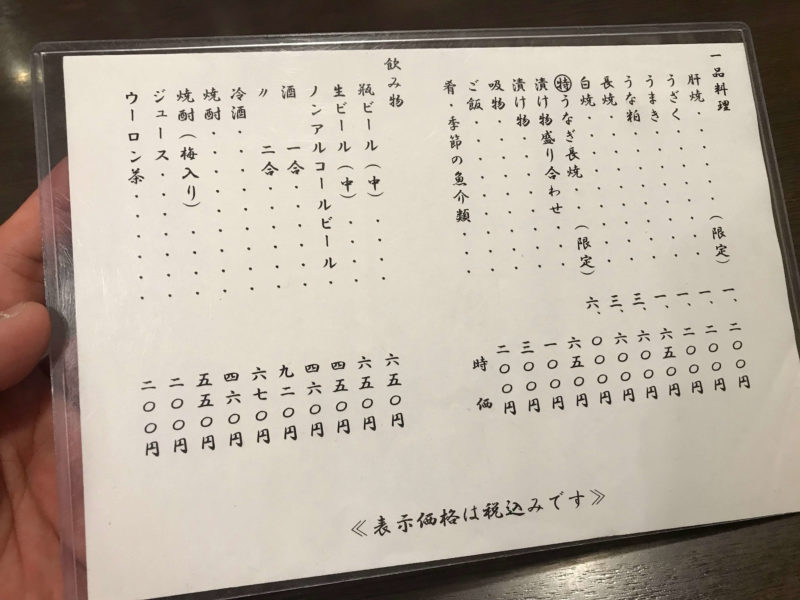 一品料理
肝焼・・・・・(限定) 一、二〇〇円
うざく・・・・・・・ 一、二〇〇円
うまき・・・・・・・ 一、二〇〇円
うな粕・・・・・・・ 一、六五〇円
長焼・・・・・・・・ 三、六〇〇円
白焼・・・・・・・・ 三、六〇〇円
㊕うなぎ長焼(限定) 六、〇〇〇円
漬け物盛り合わせ・・ 六五〇円
漬け物・・・・・・・ 一〇〇円
吸物・・・・・・・・ 三〇〇円
ご飯・・・・・・・・ 二〇〇円
肴・季節の魚介類・・ 時価
飲み物
瓶ビール(中)・・・ 六五〇円
生ビール(中)・・・ 六五〇円
ノンアルコールビール・ 四五〇円
酒 一合・・・・・ 四六〇円
〃 二合・・・・・ 九二〇円
冷酒・・・・・・・ 六七〇円
焼酎・・・・・・・ 四六〇円
焼酎(梅入り)・・・ 五五〇円
ジュース・・・・・ 二〇〇円
ウーロン茶・・・・・ 二〇〇円
≪表示価格は税込みです≫